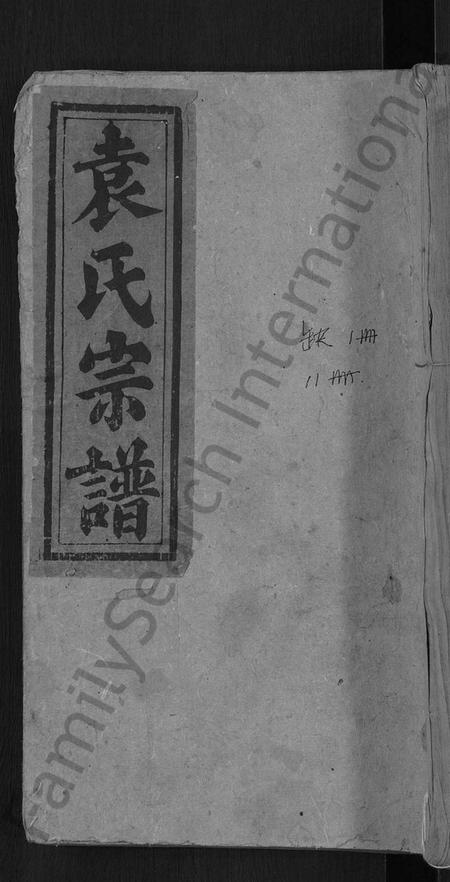 袁氏宗譜
缺 1冊
11冊.
FamilySearch International